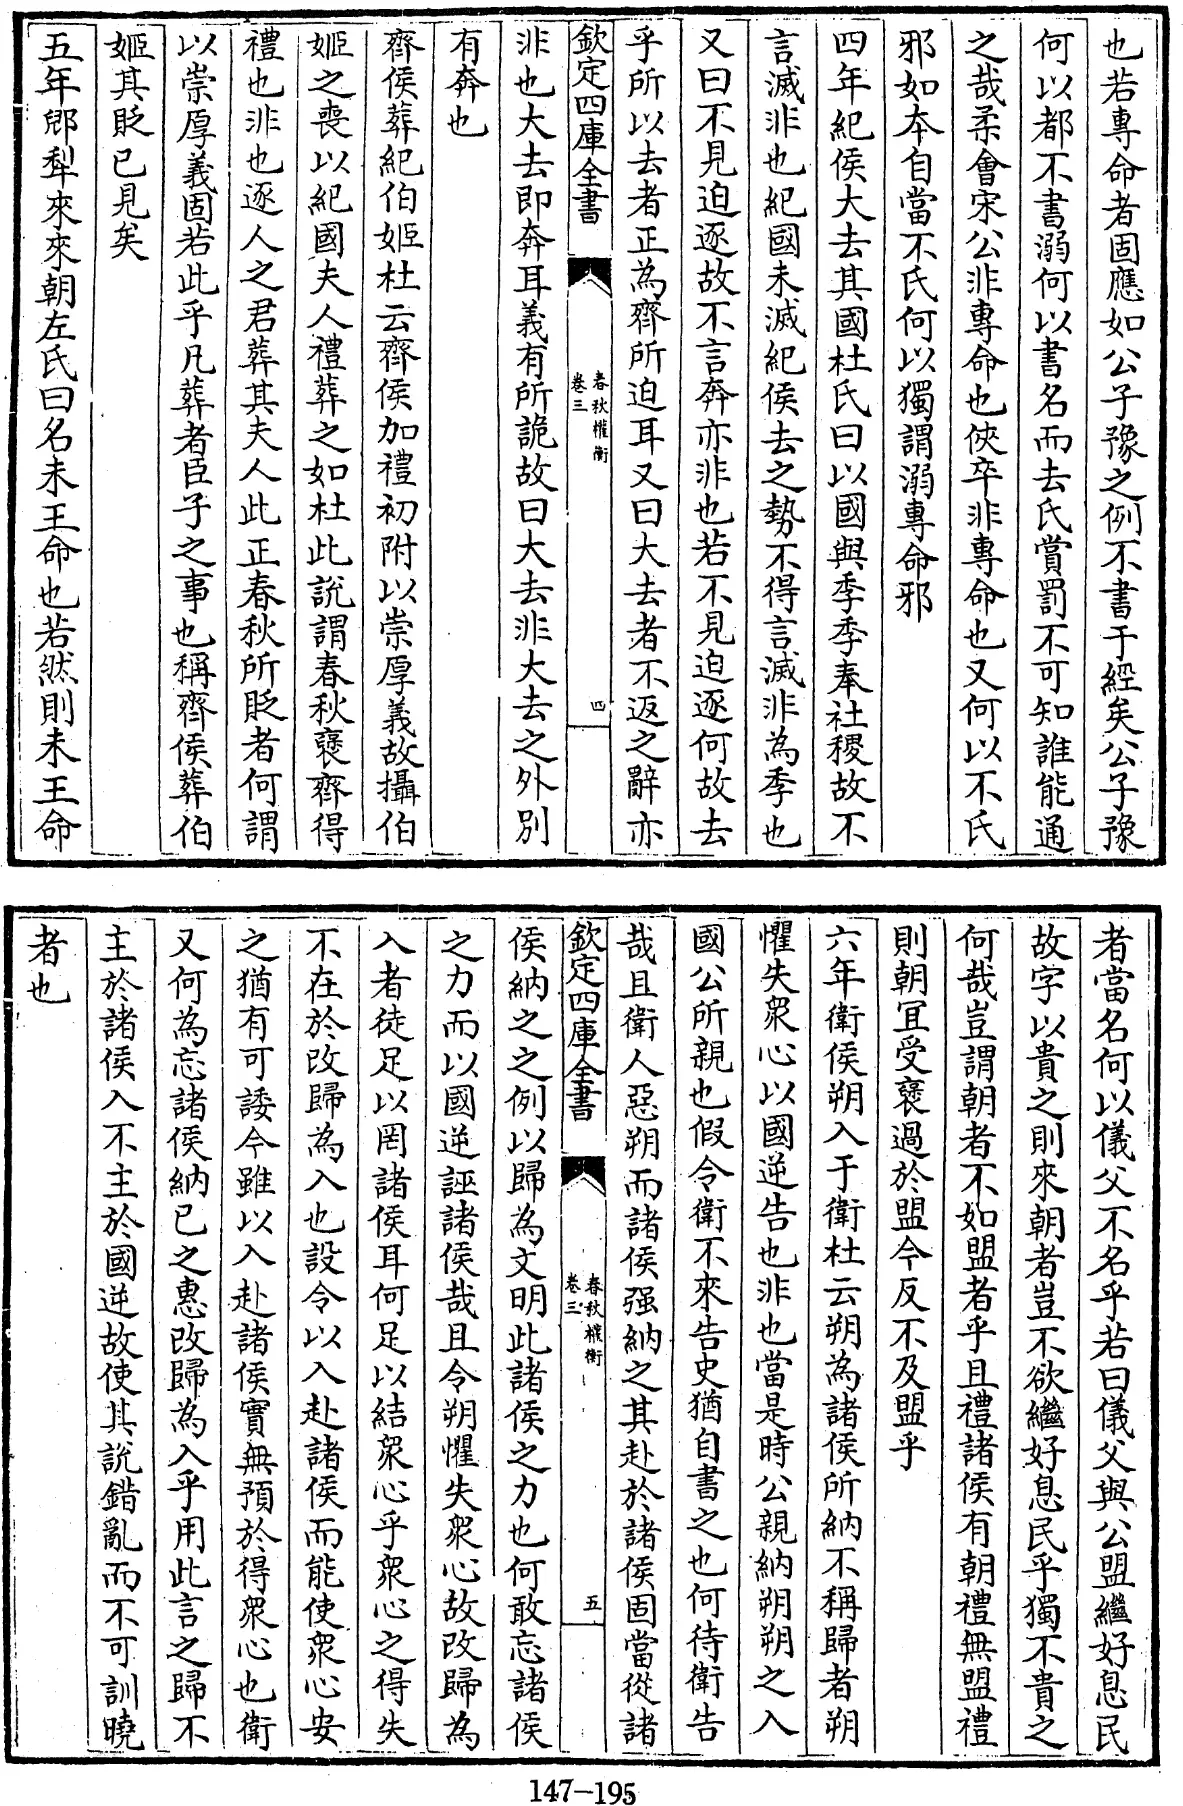 也若專命者固應如公子豫之例不書于經矣公子豫
何以都不書溺何以書名而去氏賞罰不可知誰能通
之哉柔會宋公非專命也俠卒非專命也又何以不氏
邪如本自當不氏何以獨謂溺專命邪
四年紀侯大去其國杜氏曰以國與季季奉社稷故不
言滅非也紀國未滅紀侯去之勢不得言滅非為季也
又曰不見迫逐故不言奔亦非也若不見迫逐何故去
乎所以去者正為齊所迫耳又曰大去者不返之辭亦
欽定四庫全書
春秋權衡
卷三
四
非也大去即奔耳義有所詭故曰大去非大去之外別
有奔也
齊侯葬紀伯姬杜云齊侯加禮初附以崇厚義故攝伯
姬之喪以紀國夫人禮葬之如杜此說謂春秋襃齊得
禮也非也逐人之君葬其夫人此正春秋所貶者何謂
以崇厚義固若此乎凡葬者臣子之事也稱齊侯葬伯
姬其貶已見矣
五年郳犁來來朝左氏曰名未王命也若然則未王命
者當名何以儀父不名乎若曰儀父與公盟繼好息民
故字以貴之則來朝者豈不欲繼好息民乎獨不貴之
何哉豈謂朝者不如盟者乎且禮諸侯有朝禮無盟禮
則朝宜受襃過於盟今反不及盟乎
六年衛侯朔入于衛杜云朔為諸侯所納不稱歸者朔
懼失衆心以國逆告也非也當是時公親納朔朔之入
國公所親也假令衛不來告史猶自書之也何待衛告
哉且衛人惡朔而諸侯强納之其赴於諸侯固當從諸
欽定四庫全書
春秋權衡
卷三
五
侯納之之例以歸為文明此諸侯之力也何敢忘諸侯
之力而以國逆誣諸侯哉且令朔懼失衆心故改歸為
入者徒足以罔諸侯耳何足以結衆心乎衆心之得失
不在於改歸為入也設令以入赴諸侯而能使衆心安
之猶有可諉今雖以入赴諸侯實無預於得衆心也衛
又何為忘諸侯納已之惠改歸為入乎用此言之歸不
主於諸侯入不主於國逆故使其說錯亂而不可訓曉
者也
147-195